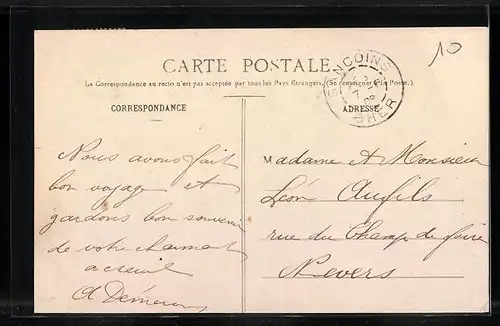 10
CARTE POSTALE
La Correspondance au recto n'est pas acceptée par tous les Pays Étrangers. (Se renseigner à la Poste.)
SANCOINS
CHER
CORRESPONDANCE
ADRESSE
Nous avons fait
bon voyage et
gardons bon souvenir
de votre charmant
accueil
Madame et Monsieur
Léon Aufils
rue du Champ de foire
Nevers